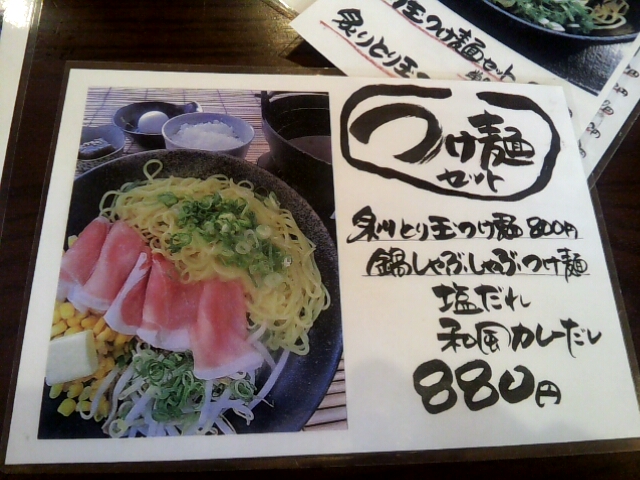 玉つけ麺セット
炙りとり玉つ
つけ麺
セット
炙りとり玉つけ麺 800円
鍋しゃぶしゃぶつけ麺
塩だれ
和風カレーだし
880円